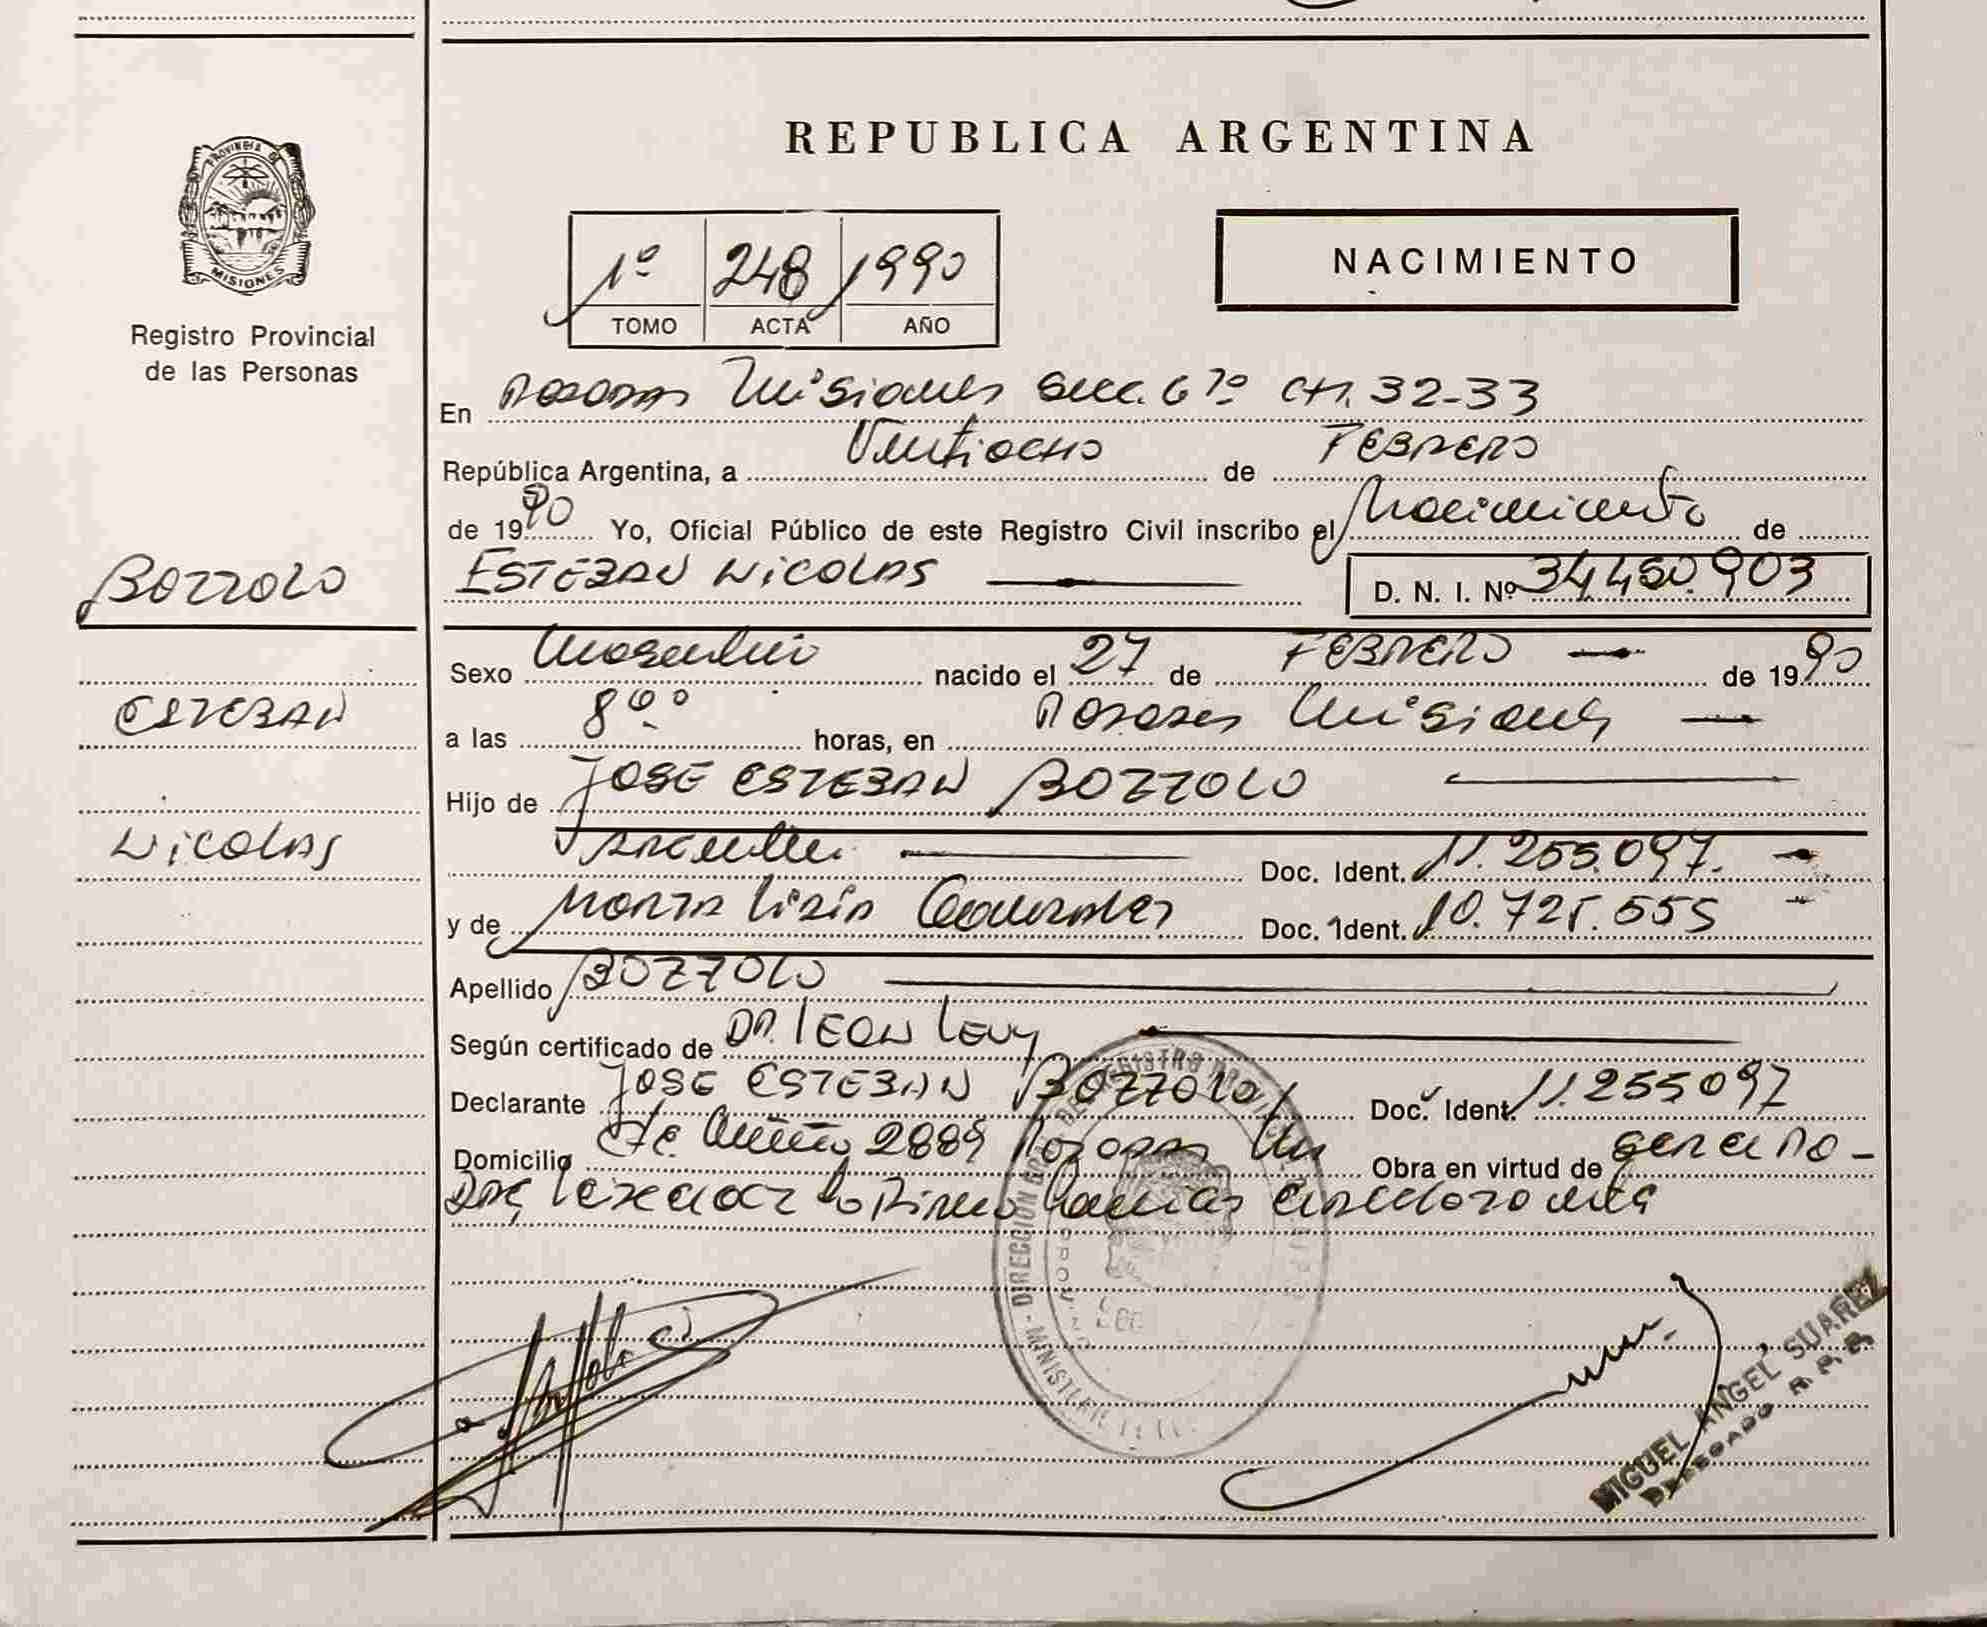 PROVINCIA DE
MISIONES
Registro Provincial
de las Personas
REPUBLICA ARGENTINA
1º 248 1990
TOMO ACTA AÑO
NACIMIENTO
En Posadas Misiones Secc. 6ta CH. 32-33
República Argentina, a Ventiocho de FEBRERO
de 1990 Yo, Oficial Público de este Registro Civil inscribo el Nacimiento de
BOZZOLO
ESTEBAN NICOLAS D. N. I. Nº 34.450.903
Sexo Masculino nacido el 27 de FEBRERO de 1990
ESTEBAN
a las 8 horas, en Posadas Misiones
Hijo de JOSE ESTEBAN BOZZOLO
NICOLAS
Doc. Ident. 11.255.097.
y de Doc. Ident. 10.725.555
Apellido BOZZOLO
Según certificado de DR. LEON LEVY
Declarante JOSE ESTEBAN BOZZOLO Doc. Ident. 11.255097
Domicilio 2889 Posadas Mis Obra en virtud de
DIRECCION REGISTRO
MIGUEL ANGEL SUAREZ
DELEGADO R. P. P.